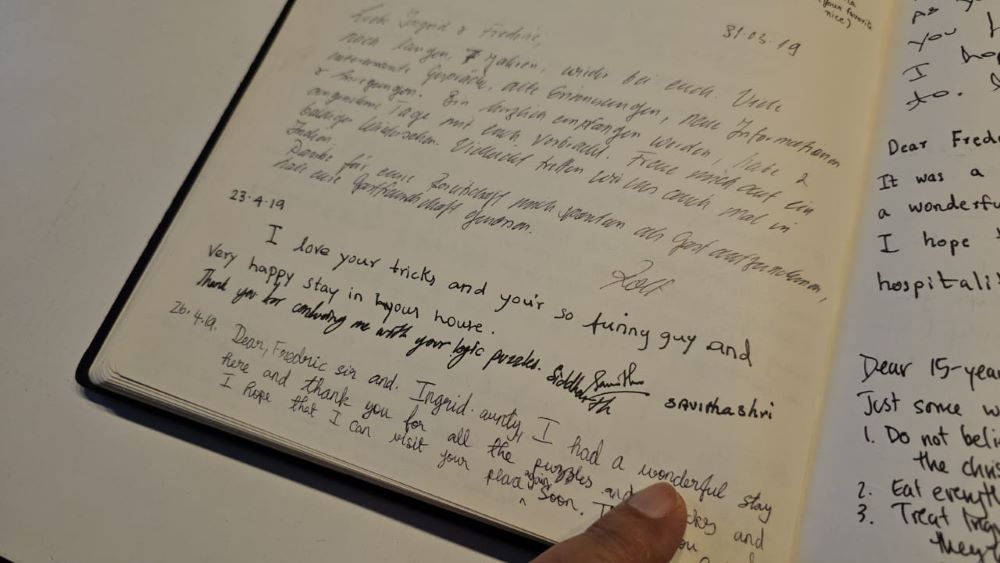 31.03.19
nach langen 7 Jahren, wieder bei euch. Viele
interessante Gespräche, alte Erinnerungen, neue Informationen
& Anregungen. Ein herzlich empfangen werden, habe 2
angenehme Tage mit euch verbracht. Freue mich auf ein
baldiges Wiedersehen. Vielleicht treffen wir uns auch mal in
Indien.
Danke für eure Bereitschaft mich als Gast aufzunehmen,
habe eure Gastfreundschaft genossen.
23.4.19
I love your tricks and your's so funny guy and
very happy stay in your house.
Thank you for confusing me with your logic puzzles. Siddharth
SAVITHASHRI
26.4.19.
Dear, Fredric sir and. Ingrid aunty, I had a wonderful stay
here and thank you for all the puzzles and and
I hope that I can visit your place again soon.
your favorite
nice)
you
I
to.
Dear
It was a
a
I hope
Dear
Just some
1. Do not
the
2. Eat
3. Treat
they